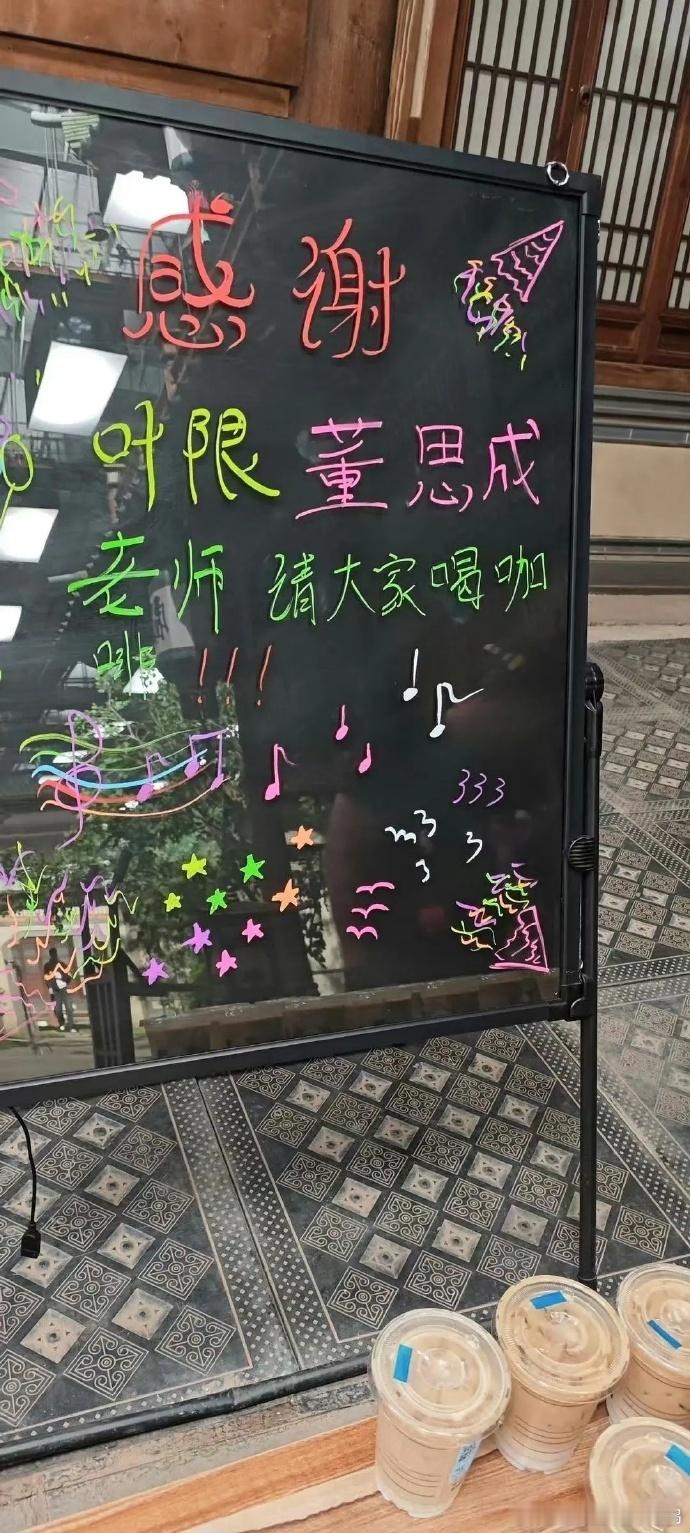 感谢
叶限 董思成
老师 请大家喝咖
啡!!!